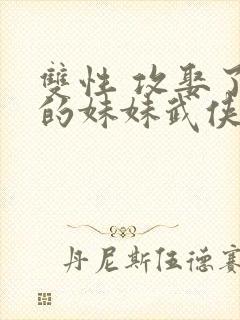 雙性 攻娶了
的妹妹武俠
丹尼斯伍德賽